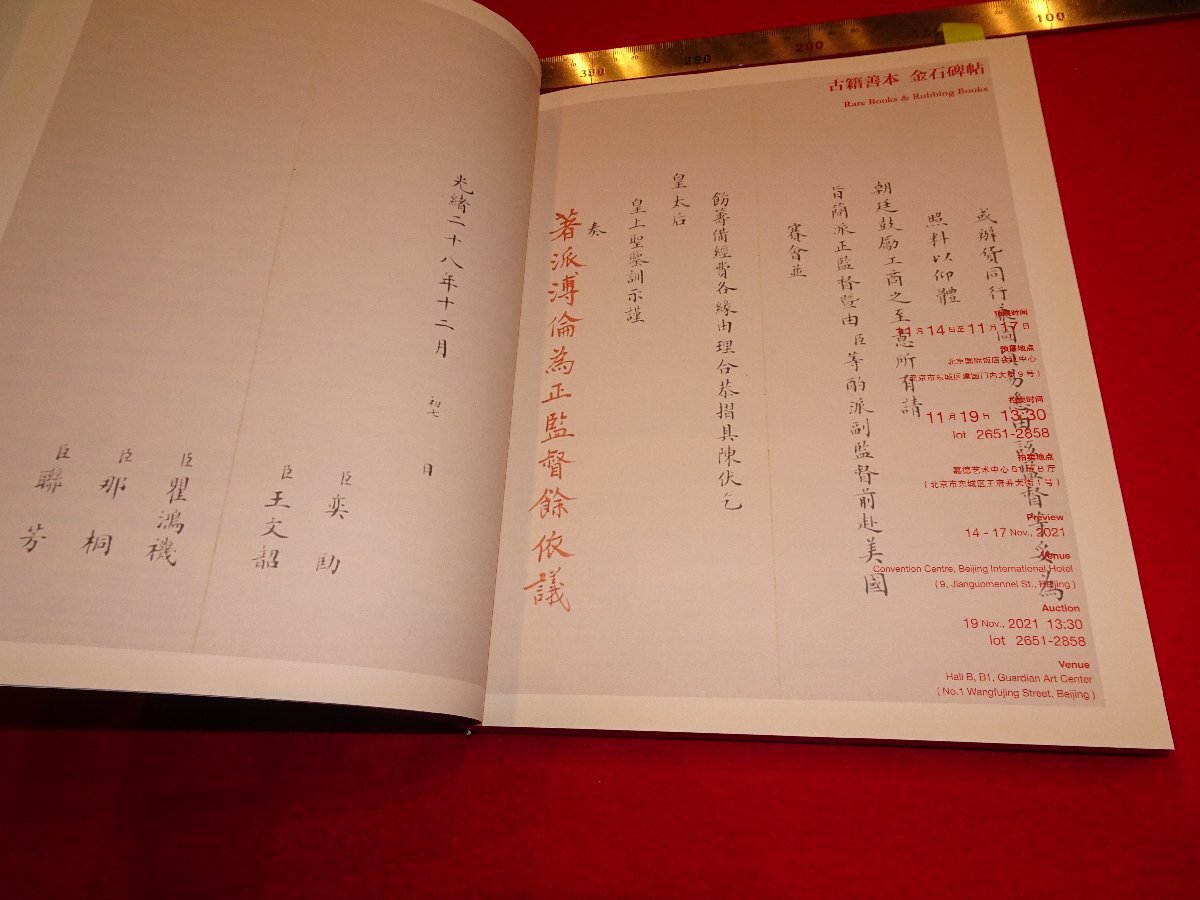 古籍善本 金石碑帖
Rare Books & Rubbing Books
或辦貨同行
照料以仰體
朝廷鼓勵工商之至意所有請
旨簡派正監督暨由臣等酌派副監督前赴美國
賽會並
飭籌備經費各緣由理合恭摺具陳伏乞
皇太后
皇上聖鑒訓示謹
奏
著派溥倫為正監督餘依議
光緒二十八年十二月 初七 日
臣 奕劻
臣 王文韶
臣 瞿鴻禨
臣 那桐
臣 聯芳
预展时间
11月14日至11月17日
预展地点
北京国际饭店会议中心
(北京市东城区建国门内大街9号)
拍卖时间
11月19日 13:30
lot 2651-2858
拍卖地点
嘉德艺术中心B1层B厅
(北京市东城区王府井大街1号)
Preview
14 - 17 Nov., 2021
Venue
Convention Centre, Beijing International Hotel
(9, Jianguomennei St., Beijing)
Auction
19 Nov., 2021 13:30
lot 2651-2858
Venue
Hall B, B1, Guardian Art Center
(No.1 Wangfujing Street, Beijing)
300
250
200
100